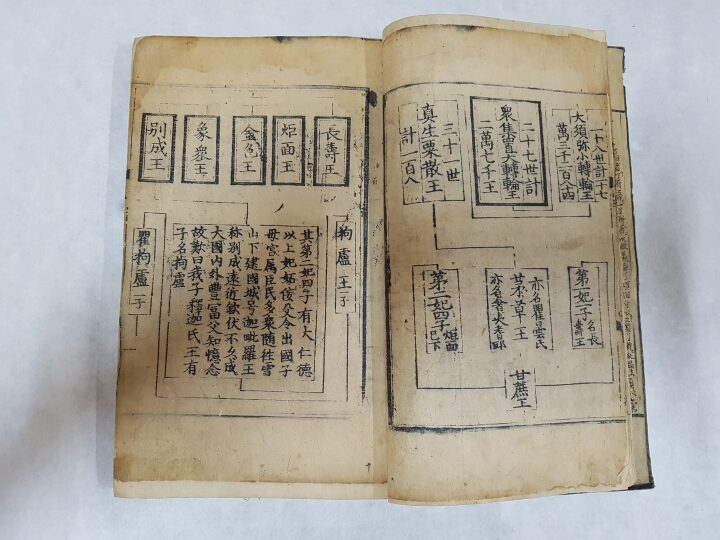 二十八世計二十七
大須弥小轉輪王
萬三千二百八十四
二十七世計
衆集置大轉輪王
二萬七千王
三十一世
真生栗散王
計一百八
第一妃子
名長
壽王
亦名瞿曇氏
草王
亦名舍夷
第二妃四子
炬面
已下
甘蔗王
長壽王
炬面王
金色王
象衆王
別成王
拘盧王子
其第二妃四子有大仁德
以上妃妬俊父令出國子
母宮屬臣民多衆隨往雪
山下建國城号迦毗羅王
称別成遠近歡伏不久成
大國內外豐富父知憶念
故歎曰我子釋迦氏王有
子名拘盧
瞿拘盧子